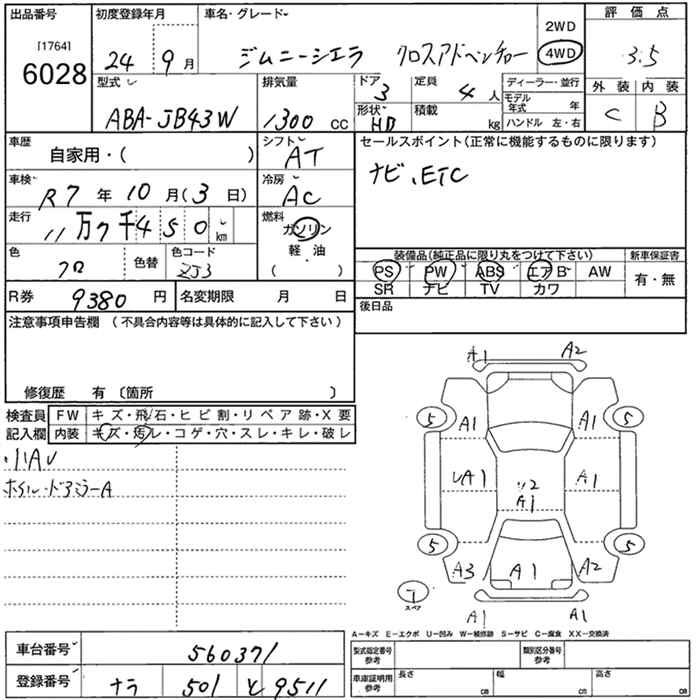 出品番号
[1764]
6028
初度登録年月
24 9月
車名・グレード
ジムニーシエラ クロスアドベンチャー
2WD
4WD
評価点
3.5
型式
ABA-JB43W
排気量
1300 cc
ドア
3
定員
4人
形状
HD
積載
kg
ディーラー・並行
モデル年式 年
ハンドル 左・右
外装 内装
C B
車歴
自家用・( )
シフト
AT
車検
R7年10月(3日)
冷房
AC
走行
11万7千450km
燃料
ガソリン
軽・油
( )
色
クロ
色替
色コード
ZJ3
R券
9380円
名変期限 月 日
セールスポイント(正常に機能するものに限ります)
ナビ、ETC
装備品(純正品に限り丸をつけて下さい)
新車保証書
PS PW ABS エアB AW
SR ナビ TV カワ
有・無
後日品
注意事項申告欄(不具合内容等は具体的に記入して下さい)
修復歴 有〔箇所 〕
検査員記入欄
FW キズ・飛石・ヒビ割・リペア跡・X要
内装 キズ・汚レ・コゲ・穴・スレ・キレ・破レ
・小AU
ホイル・ドアミラーA
A1 A2
5 A1 A1 5
UA1 A1
A1
5 5
A3 A1 A2
スペア
A1 A1
A-キズ E-エクボ U-凹み W-補修跡 S-サビ C-腐食 XX-交換済
車台番号
560371
登録番号
ナラ 501 と 9511
型式指定番号
参考
類別区分番号
参考
車庫証明用
参考
長さ cm
幅 cm
高さ cm